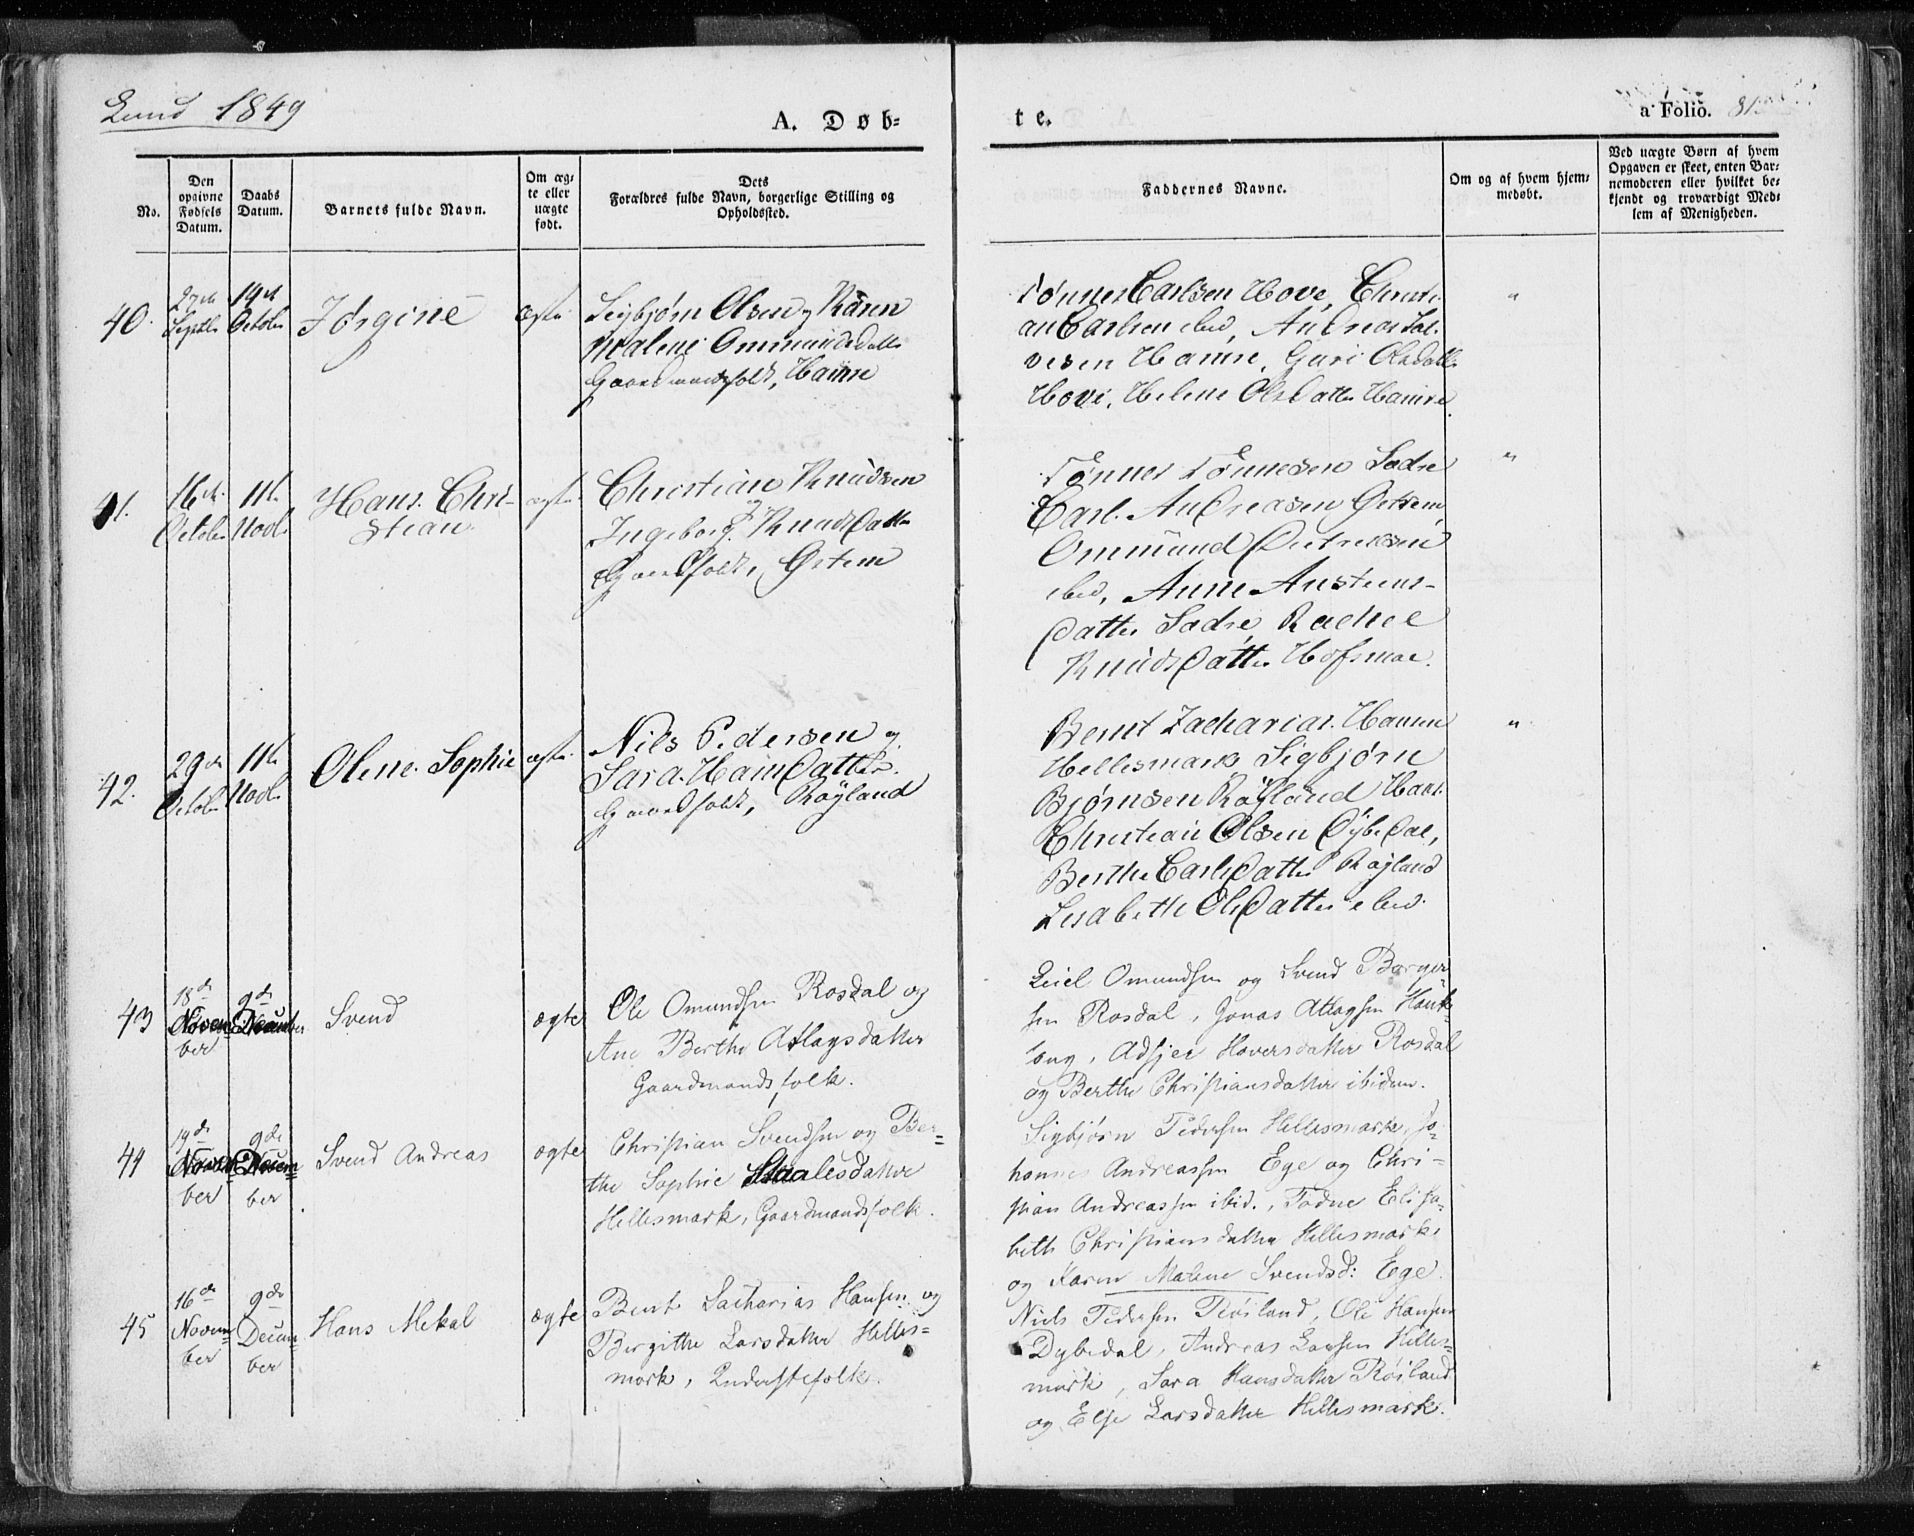 Lund 1849
A. Døb-
te.
a Folio. 81.
No.
Den
opgivne
Fødsels
Datum.
Daabs
Datum.
Barnets fulde Navn.
Om æg-
te eller
uægte
født.
Dets
Forældres fulde Navn, borgerlige Stilling og
Opholdssted.
Faddernes Navne.
Om og af hvem hjem-
medøbt.
Ved uægte Børn af hvem
Opgaven er skeet, enten Bar-
nemoderen eller hvilket be-
kjendt og troværdigt Med-
lem af Menigheden.
40.
27de
Septbr
14de
Octobr
Jørgine
ægte
Sigbjørn Olsen og Karen
Malene Ommundsdatter
Gaardmandsfolk, Hamre
Tønnes Carlsen Hove, Christi-
an Carlsen ibid, Andreas Sal-
vesen Hamre, Guri Olsdatter
Hove, Helene Olsdatter Hamre
"
41.
16de
Octobr
11te
Novbr
Hans Chri-
stian
ægte
Christian Knudsen
og
Ingeborg Knudsdatter
Gaardfolk, Østem
Tønnes Tønnesen Sadre
Carl Andreasen Østem
Ommund Didriksen
ibid, Anne Austens-
datter Sadre Rachel
Knudsdatter Hofsmoe.
"
42.
29de
Octobr
11te
Novbr
Olene Sophie
ægte
Nils Pedersen og
Sara Hansdatter
Gaardfolk, Røyland
Bernt Zacharias Hansen
Hellesmark Sigbjørn
Bjørnsen Røyland Hans
Christian Olsen Dybedal,
Berthe Carlsdatter Røyland
Lisabethe Olsdatter ibid.
"
43
18de
Novem-
ber
9de
December
Svend
ægte
Ole Omundsen Rosdal og
Ane Berthe Atlagsdatter
Gaardmandsfolk.
Eiel Omundsen og Svend Børger-
sen Rosdal, Jonas Atlagsen Hauk-
, Adsjer Haversdatter Rosdal
og Berthe Christiansdatter ibidem.
44
19de
Novem-
ber
9de
Decem-
ber
Svend Andreas
ægte
Christian Svendsen og Ber-
the Sophie Staalesdatter
Hellesmark, Gaardmandsfolk.
Sigbjørn Pedersen Hellesmark, Jo-
hannes Andreassen Ege og Chri-
stian Andreassen ibid., Todne Elisa-
beth Christiansdatter Hellesmark
og Karen Malene Svendsd: Ege.
45
16de
Novem-
ber
9de
Decem-
ber
Hans Mekal
ægte
Bent Sacharias Hansen og
Birgithe Larsdatter Helles-
mark, Inderstefolk.
Niels Pedersen Røiland, Ole Hansen
Dybedal, Andreas Larsen Helles-
mark, Sara Hansdatter Røiland
og Else Larsdatter Hellesmark.